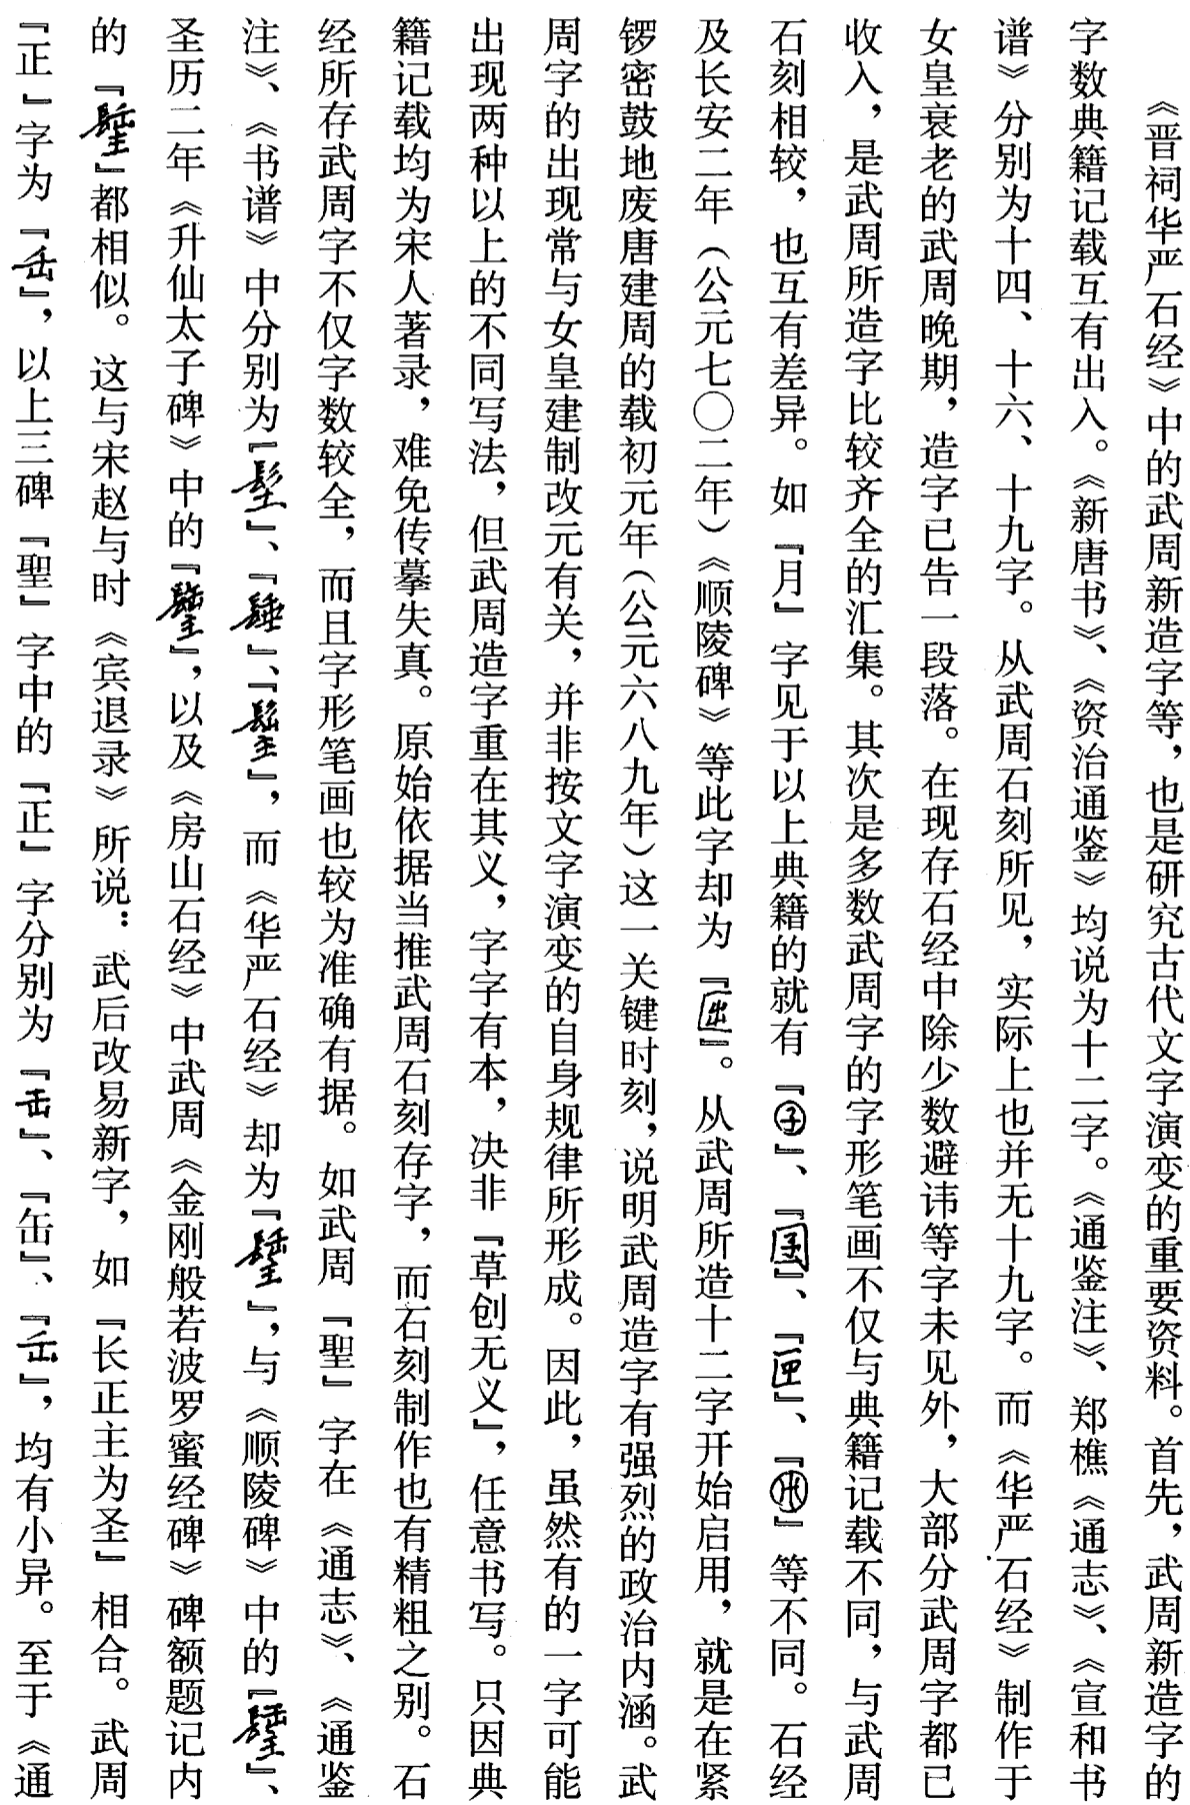 《晋祠华严石经》中的武周新造字等，也是研究古代文字演变的重要资料。首先，武周新造字的
字数典籍记载互有出入。《新唐书》、《资治通鉴》均说为十二字。《通鉴注》、郑樵《通志》、《宣和书
谱》分别为十四、十六、十九字。从武周石刻所见，实际上也并无十九字。而《华严石经》制作于
女皇衰老的武周晚期，造字已告一段落。在现存石经中除少数避讳等字未见外，大部分武周字都已
收入，是武周所造字比较齐全的汇集。其次是多数武周字的字形笔画不仅与典籍记载不同，与武周
石刻相较，也互有差异。如『月』字见于以上典籍的就有『』、『』、『』、『』等不同。石经
及长安二年（公元七〇二年）《顺陵碑》等此字却为『』。从武周所造十二字开始启用，就是在紧
锣密鼓地废唐建周的载初元年（公元六八九年）这一关键时刻，说明武周造字有强烈的政治内涵。武
周字的出现常与女皇建制改元有关，并非按文字演变的自身规律所形成。因此，虽然有的一字可能
出现两种以上的不同写法，但武周造字重在其义，字字有本，决非『草创无义』，任意书写。只因典
籍记载均为宋人著录，难免传摹失真。原始依据当推武周石刻存字，而石刻制作也有精粗之别。石
经所存武周字不仅字数较全，而且字形笔画也较为准确有据。如武周『聖』字在《通志》、《通鉴
注》、《书谱》中分别为『』、『』、『』，而《华严石经》却为『』，与《顺陵碑》中的『』、
圣历二年《升仙太子碑》中的『』，以及《房山石经》中武周《金刚般若波罗蜜经碑》碑额题记内
的『』都相似。这与宋赵与时《宾退录》所说：武后改易新字，如『长正主为圣』相合。武周
『正』字为『』，以上三碑『聖』字中的『正』字分别为『』、『』、『』，均有小异。至于《通